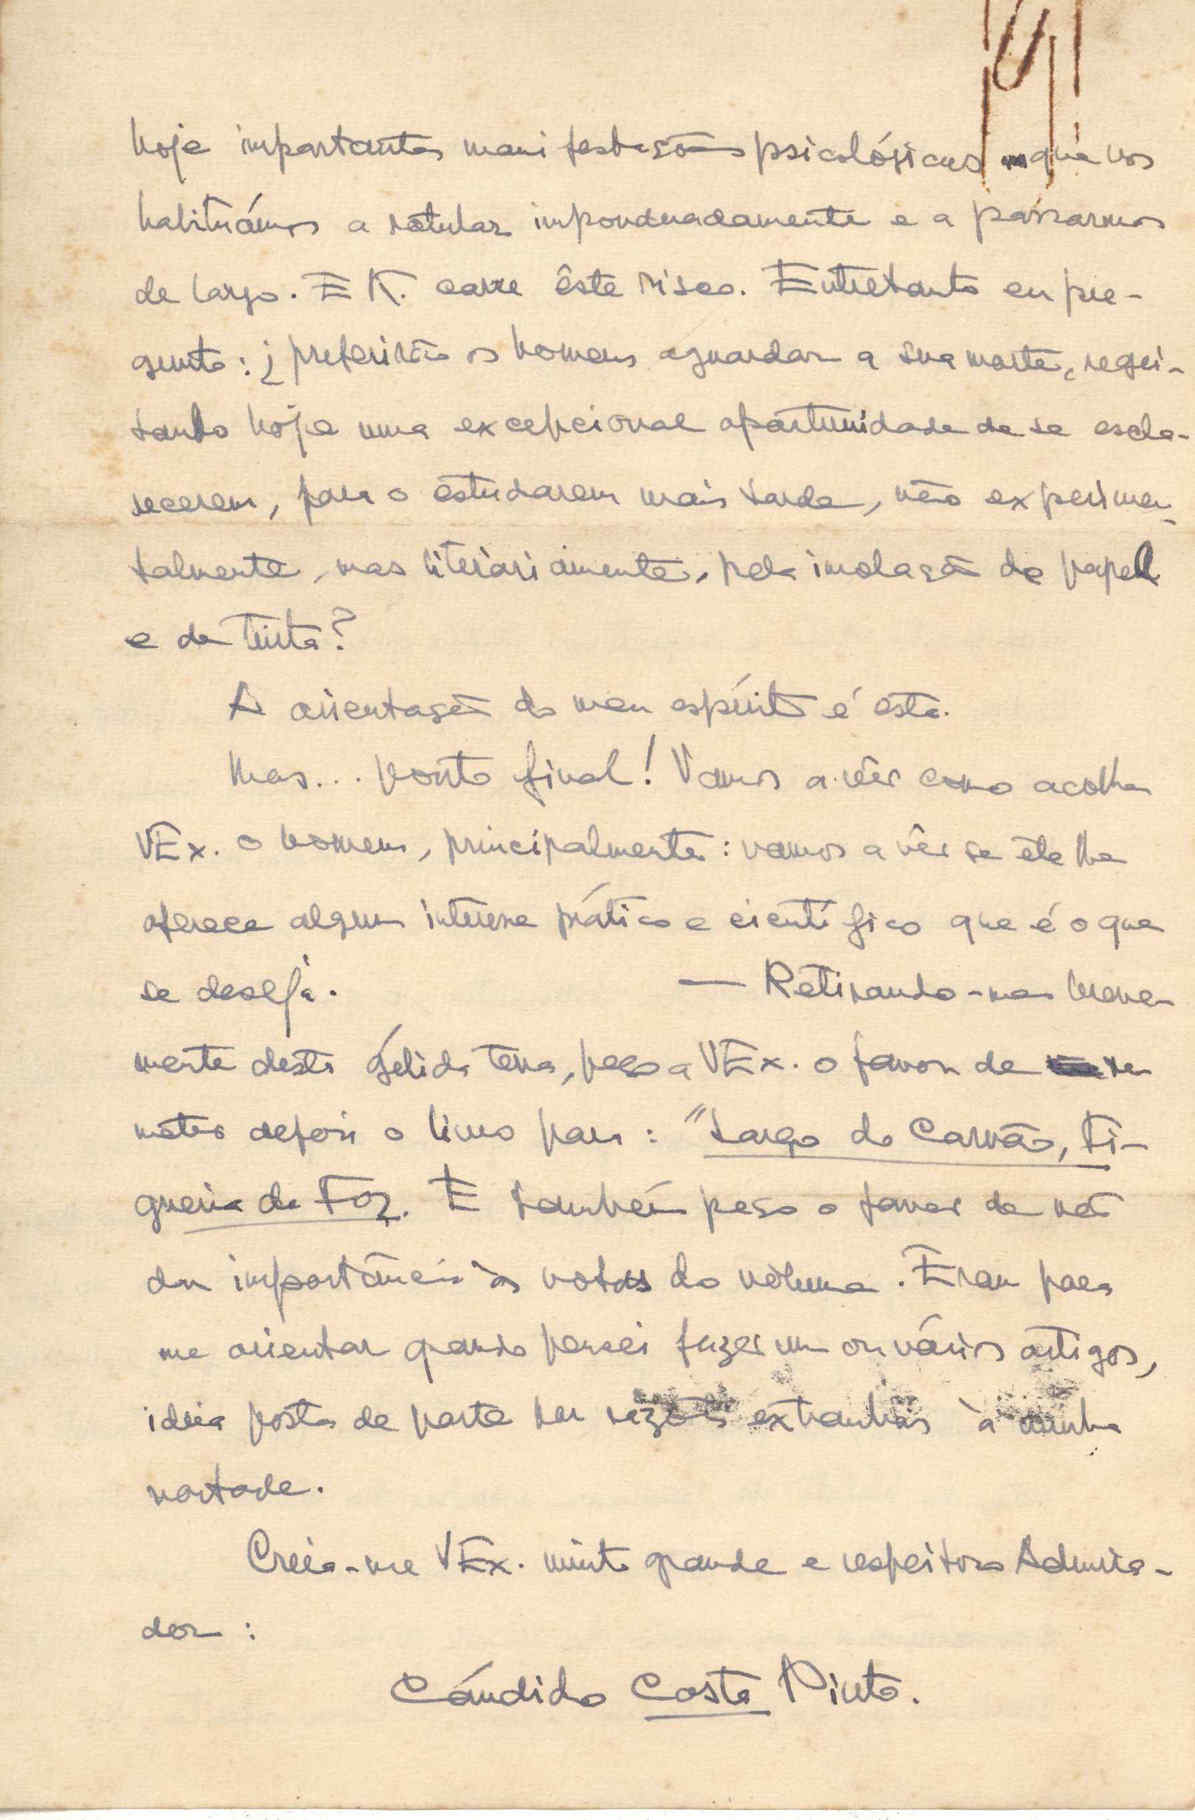 hoje importantes manifestações psicológicas que nos
habituámos a rotular imponderadamente e a passarmos
de largo. E K. corre êste risco. Entretanto eu per-
gunto: ¿preferirão os homens aguardar a sua morte, regei-
tando hoje uma excepcional oportunidade de se escla-
recerem, para o estudarem mais tarde, não experimen-
talmente, mas literáriamente, pela imolação do papel
e da tinta?
A orientação do meu espírito é esta.
Mas... ponto final! Vamos a vêr como acolhe
VEx. o homem, principalmente: vamos a vêr se êle lhe
oferece algum interesse prático e científico que é o que
se deseja. — Retirando-me breve-
mente desta gélida terra, peço a VEx. o favor de re
meter depois o livro para: "Largo do Carvão, Fi-
gueira da Foz. E também peço o favor de não
dar importância às notas do volume. Eram para
me orientar quando pensei fazer um ou vários artigos,
ideia posta de parte por razões extranhas à minha
vontade.
Creia-me VEx. muito grande e respeitoso Admira-
dor:
Cândido Costa Pinto.